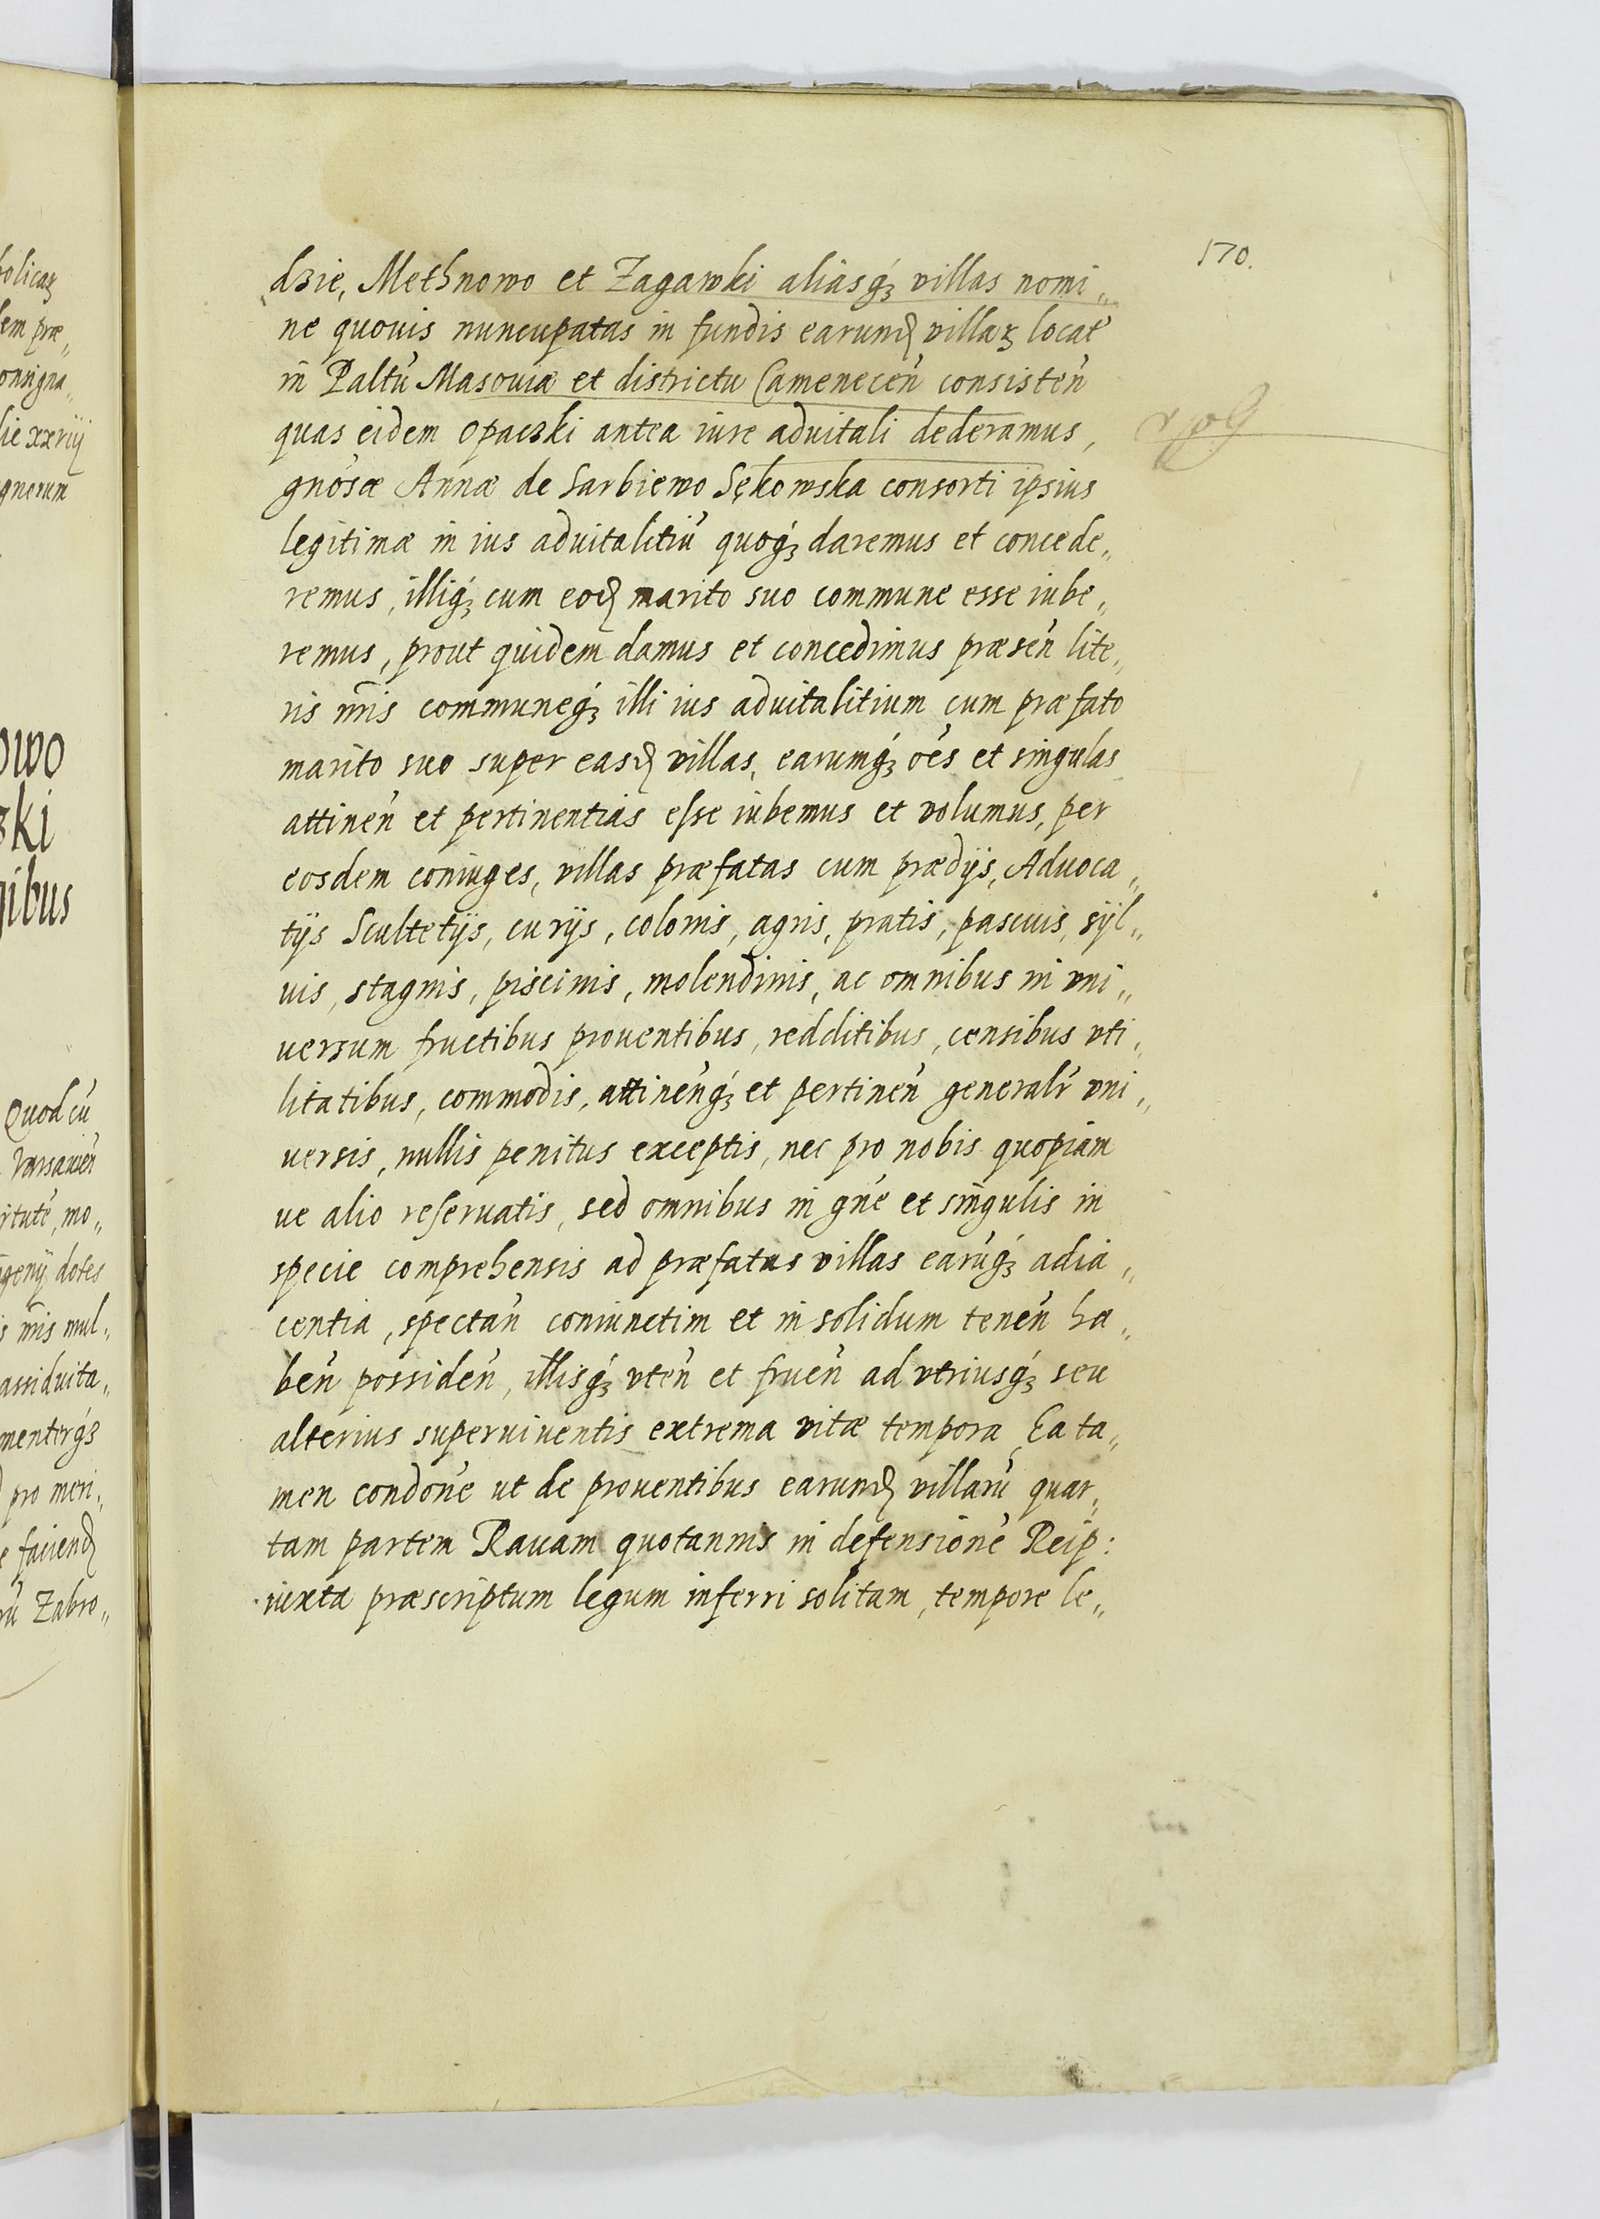 170.
dzie, Methnowo et Zagawki aliasq́ꝫ villas nomi„
ne quouis nuncupatas in fundis earund villaꝝ locat́
in Paltú Masouiæ et districtu Camenecen̛ consisten̛
quas eidem Opaczki antea iure aduitali dederamus,
gnósæ Annæ de Sarbiewo Sękowska consorti ipsius
legitimæ in ius aduitalitiú quoq́ꝫ daremus et concede„
remus, illiq́ꝫ cum eod marito suo commune esse iube„
remus, prout quidem damus et concedimus præsen̛ lite„
ris nr̃is communeq́ꝫ illi ius aduitalitium cum præfato
marito suo super easd villas, earumq́ꝫ oés et singulas
attinen̛ et pertinentias esse iubemus et volumus, per
eosdem coniuges, villas præfatas cum prædijs, Aduoca„
tijs Scultetijs, curijs, colonis, agris, pratis, pascuis, syl„
uis, stagnis, piscinis, molendinis, ac omnibus in vni„
uersum fructibus prouentibus, redditibus, censibus vti„
litatibus, commodis, attinen̛q́ꝫ et pertinen̛ generalr̛ vni„
uersis, nullis penitus exceptis, nec pro nobis quopiam
ue alio reseruatis, sed omnibus in gńe et singulis in
specie comprehensis ad præfatas villas earúq́ꝫ adia„
centia, spectan̛ coniunctim et in solidum tenen̛ ha„
ben̛ possiden̛, illisq́ꝫ vten̛ et fruen̛ ad vtriusq́ꝫ seu
alterius superuiuentis extrema vitæ tempora, Ea ta„
men condońe ut de prouentibus earund villarú quar„
tam partem Rauam quotannis in defensioné Reip:
iuxta præscriptum legum inferri solitam, tempore le„